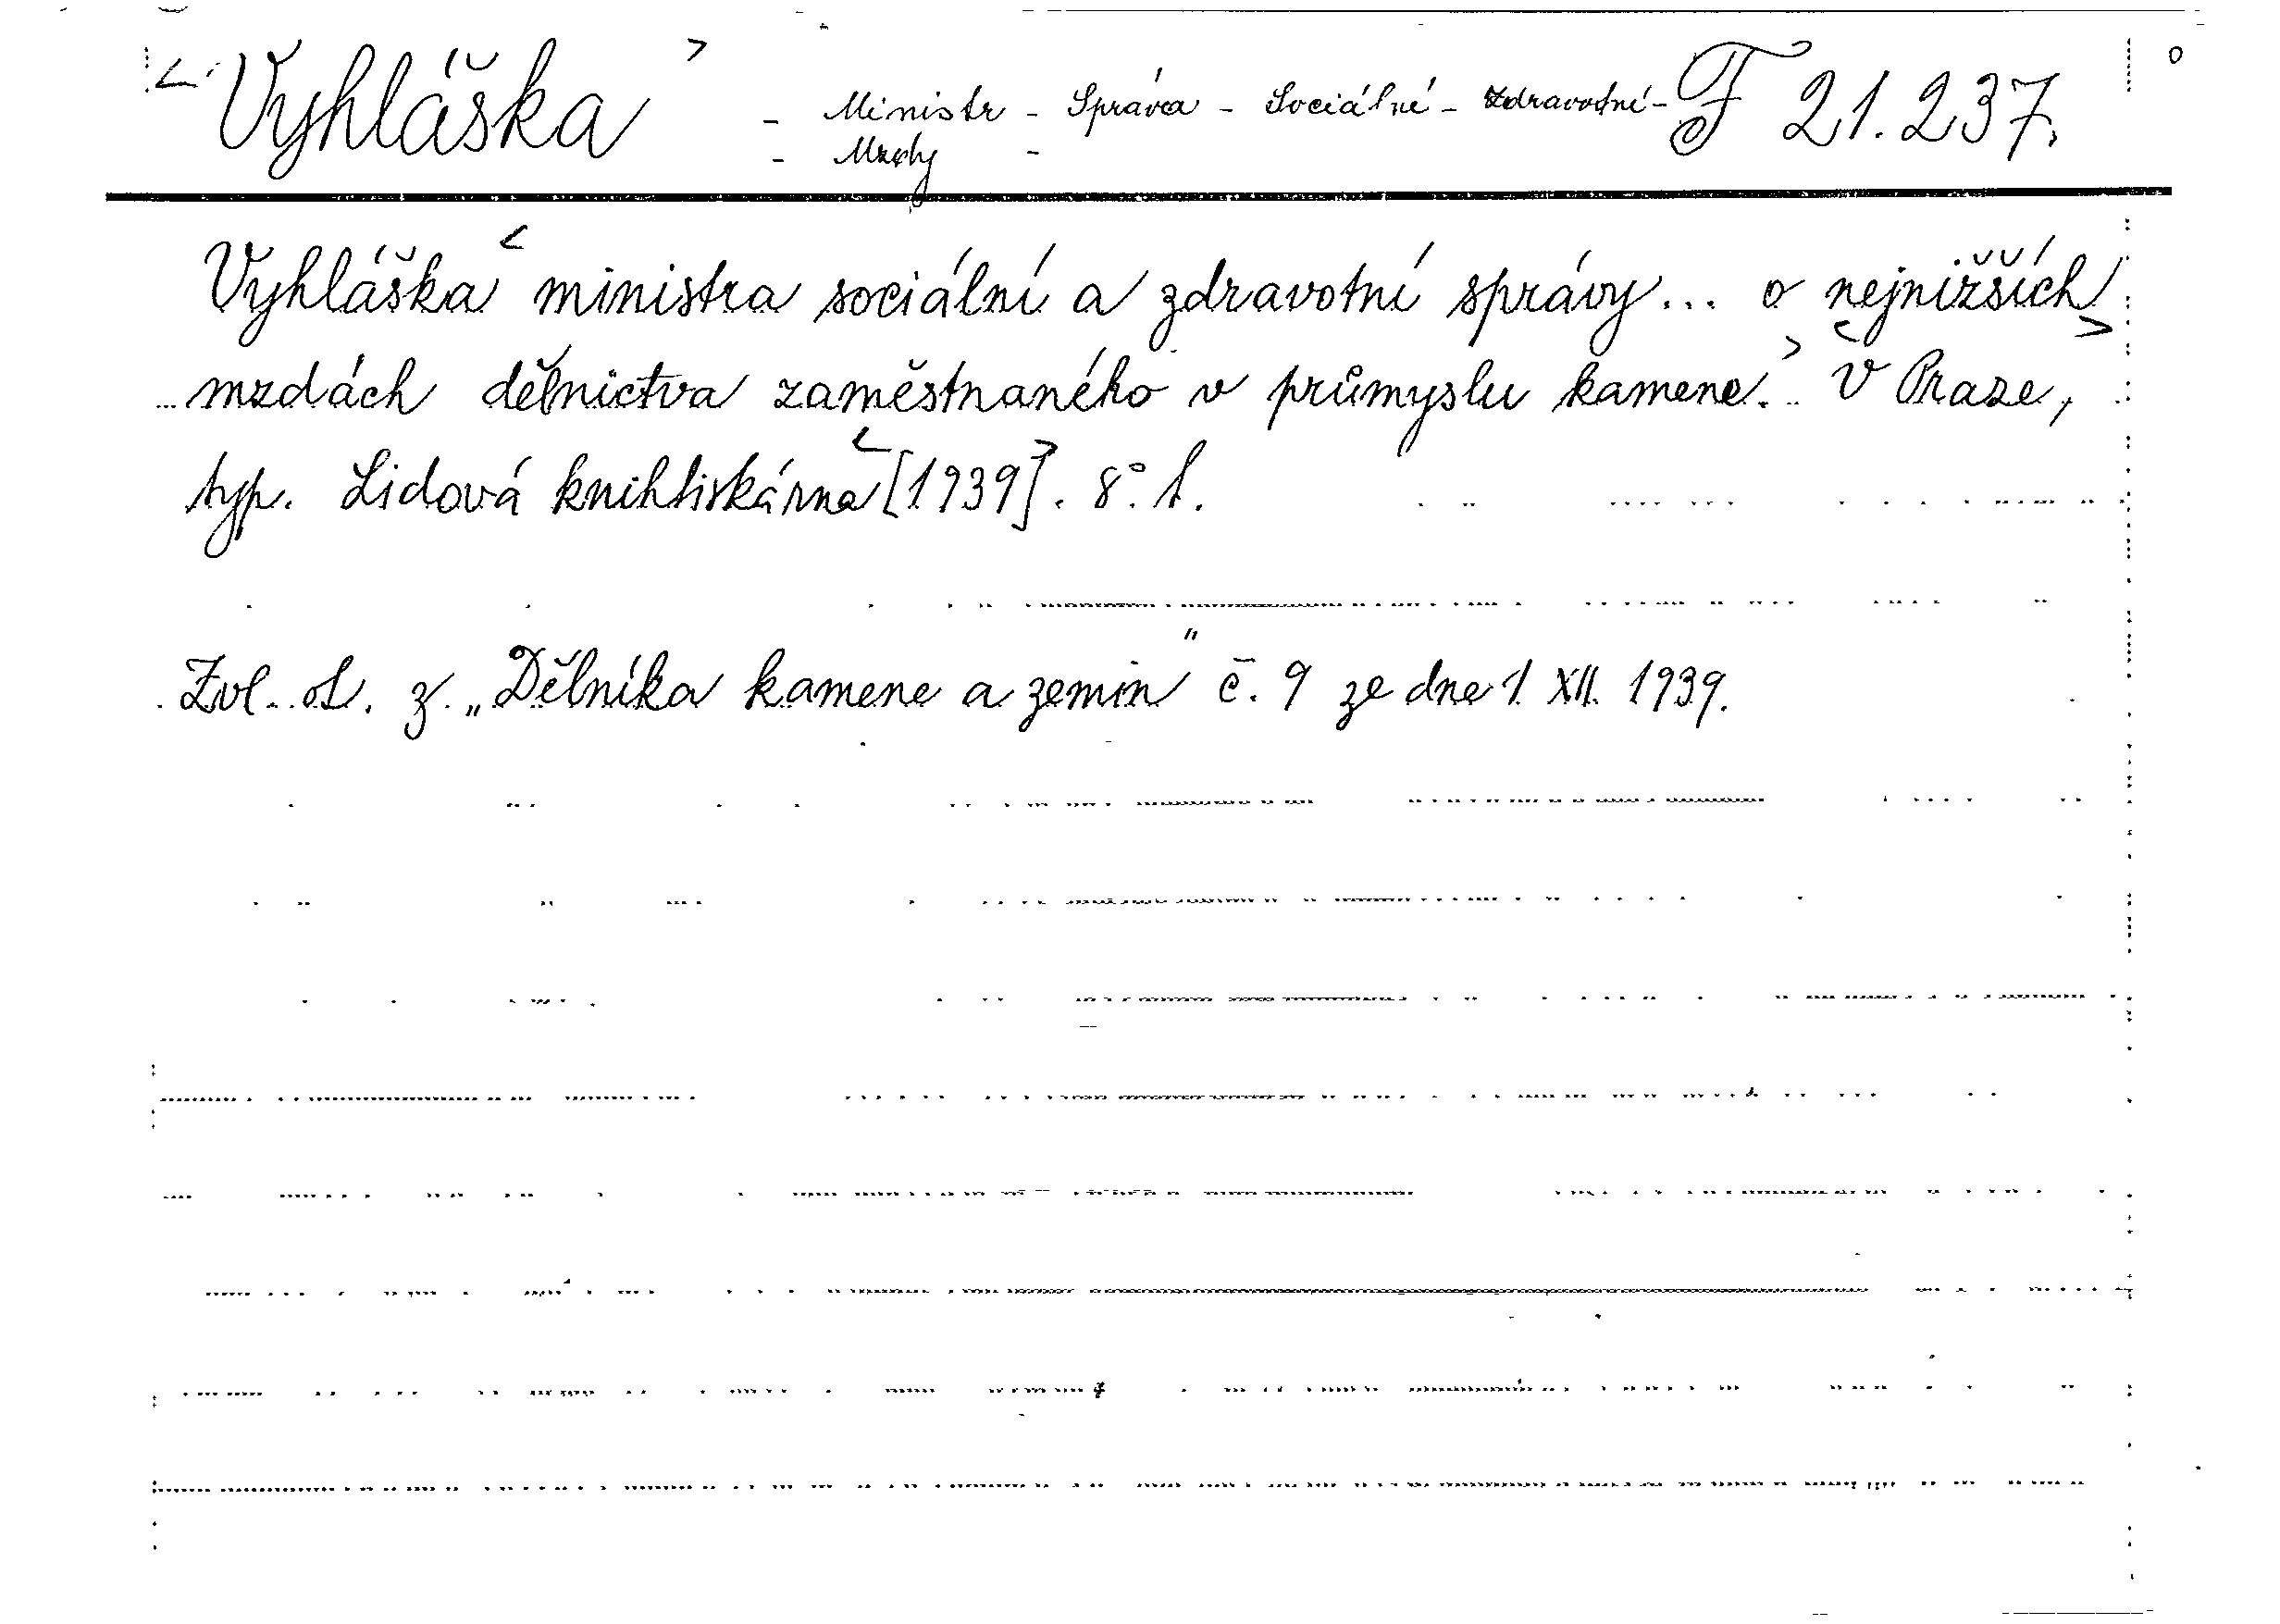 <Vyhláška> - Ministr - Správa - Sociální - Zdravotní - F 21.237.
- Mzdy -
Vyhláška < ministra sociální a zdravotní správy... o nejnižších
mzdách dělnictva zaměstnaného v průmyslu kamene.> <V Praze,>
typ. Lidová knihtiskárna <[1939]>. 8°. 1.
Zvl. ot. z. „Dělníka kamene a zemin" č. 9 ze dne 1. XII. 1939.